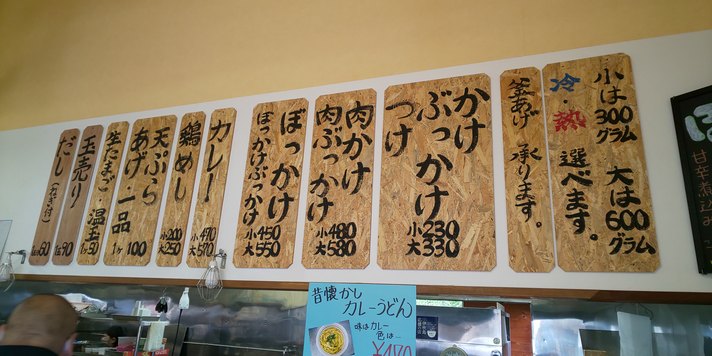 小は300グラム
大は600グラム
冷・熱
選べます。
釜あげ
承ります。
かけ
ぶっかけ
つけ
小230
大330
肉かけ
肉ぶっかけ
小480
大580
ぼっかけ
ぼっかけぶっかけ
小450
大550
カレー
小470
大570
鶏めし
小200
大250
天ぷら
あげ・一品
1ヶ100
生たまご・温玉
1ヶ50
玉売り
1玉90
だし(ねぎ付)
昔懐かし
カレーうどん
味はカレー
色は…
¥470
甘辛煮込み